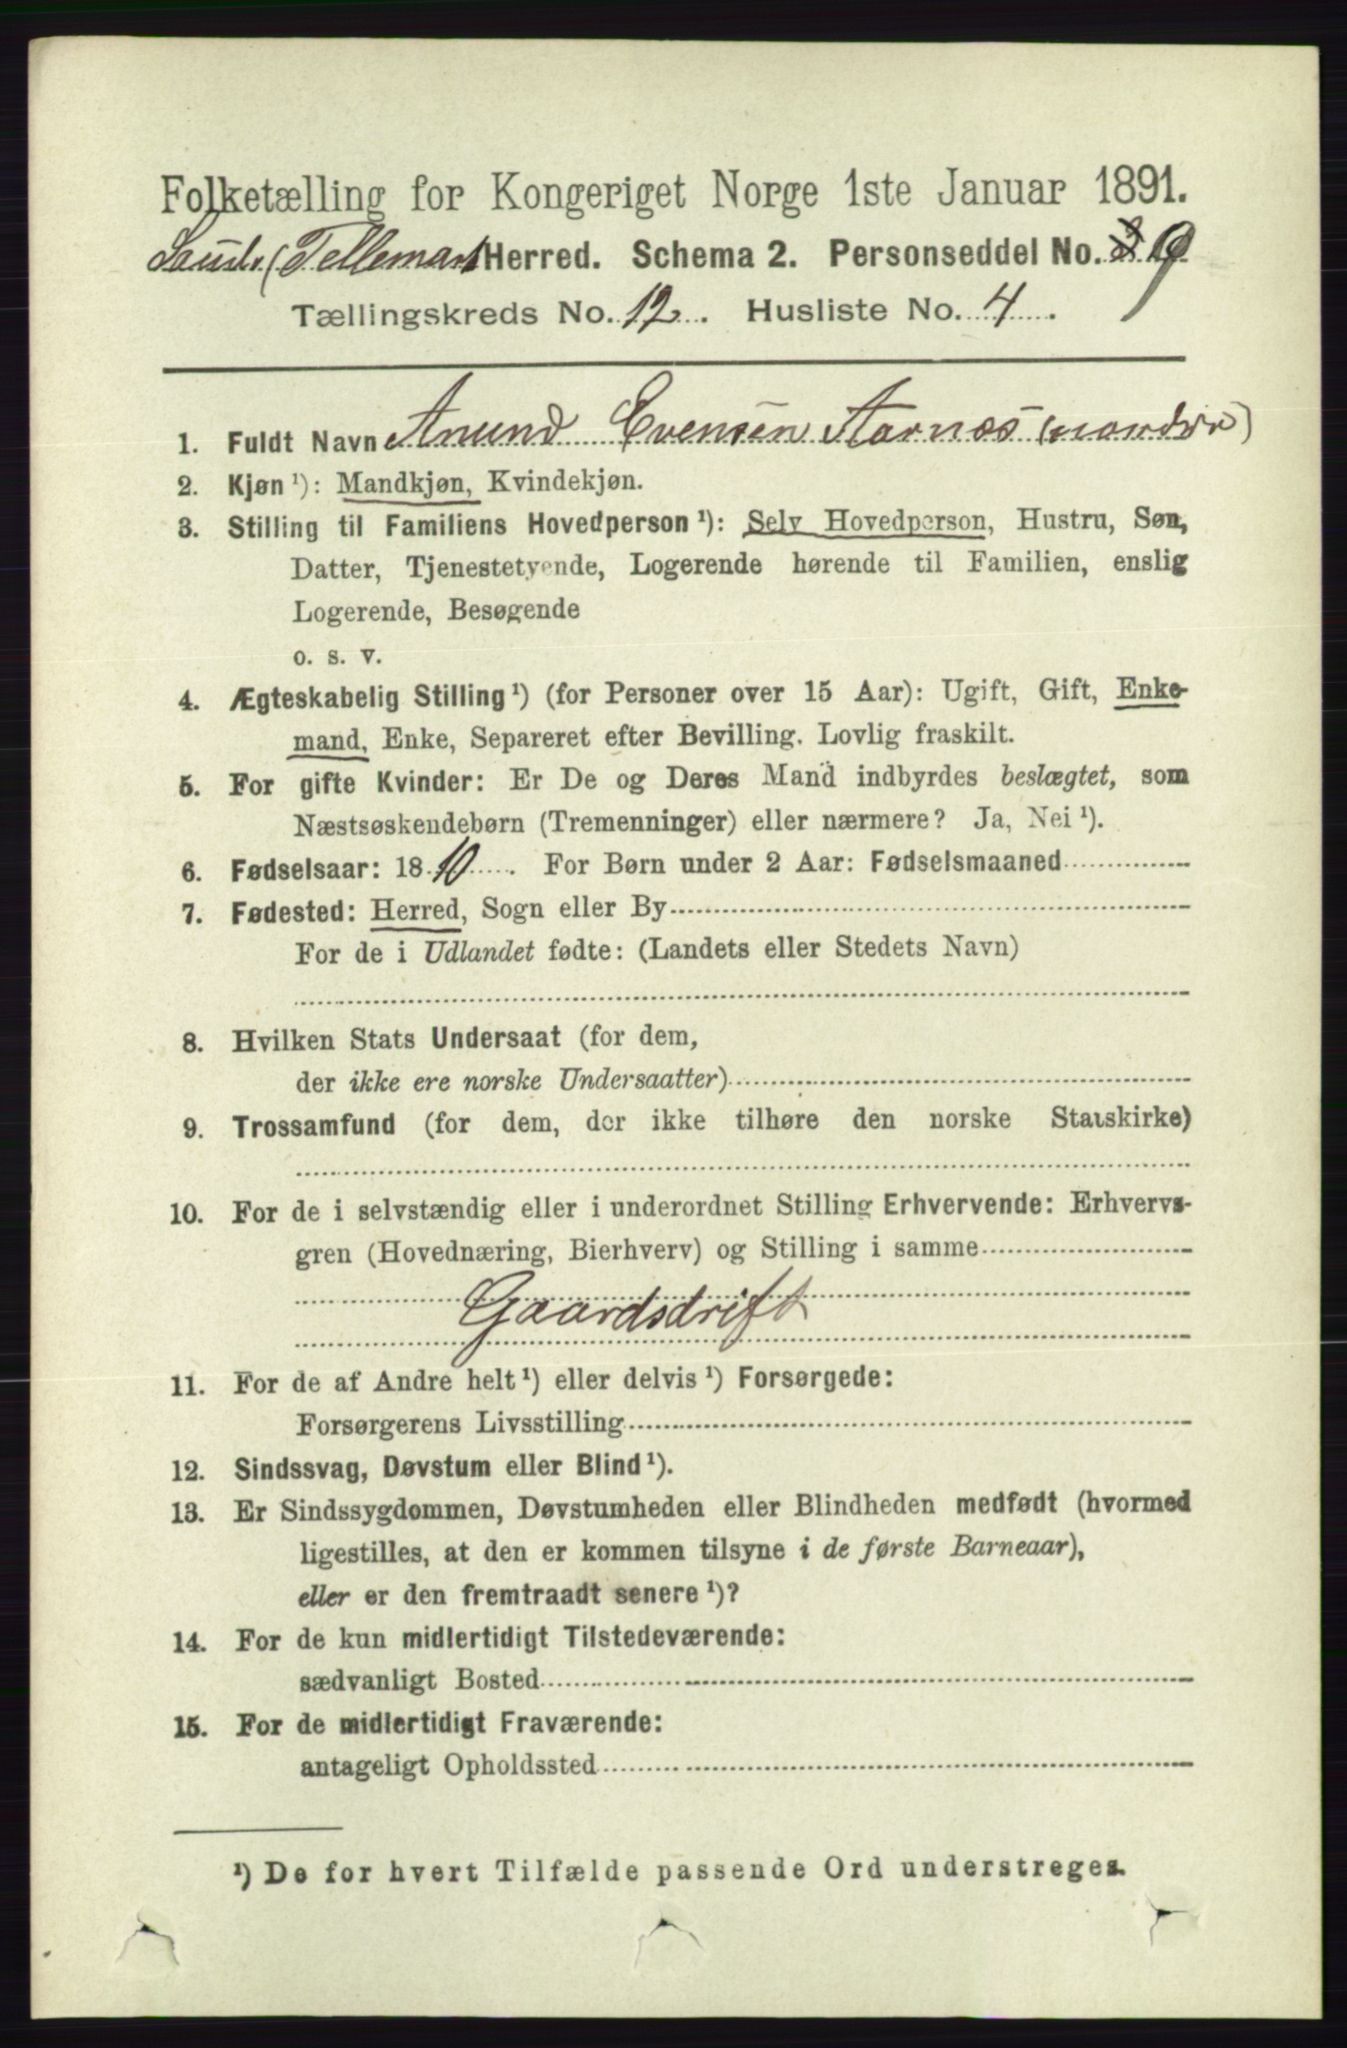 Folketælling for Kongeriget Norge 1ste Januar 1891.
Saude (Tellemark Herred. Schema 2. Personseddel No. 9
Tællingskreds No. 12. Husliste No. 4.
1. Fuldt Navn Anund Evensen Aarnæs (nordre)
2. Kjøn ¹): Mandkjøn, Kvindekjøn.
3. Stilling til Familiens Hovedperson ¹): Selv Hovedperson, Hustru, Søn,
Datter, Tjenestetyende, Logerende hørende til Familien, enslig
Logerende, Besøgende
o. s. v.
4. Ægteskabelig Stilling ¹) (for Personer over 15 Aar): Ugift, Gift, Enke-
mand, Enke, Separeret efter Bevilling. Lovlig fraskilt.
5. For gifte Kvinder: Er De og Deres Mand indbyrdes beslægtet, som
Næstsøskendebørn (Tremenninger) eller nærmere? Ja, Nei ¹).
6. Fødselsaar: 1810. For Børn under 2 Aar: Fødselsmaaned
7. Fødested: Herred, Sogn eller By
For de i Udlandet fødte: (Landets eller Stedets Navn)
8. Hvilken Stats Undersaat (for dem,
der ikke ere norske Undersaatter)
9. Trossamfund (for dem, der ikke tilhøre den norske Statskirke)
10. For de i selvstændig eller i underordnet Stilling Erhvervende: Erhvervs-
gren (Hovednæring, Bierhverv) og Stilling i samme
Gaardsdrift
11. For de af Andre helt ¹) eller delvis ¹) Forsørgede:
Forsørgerens Livsstilling
12. Sindssvag, Døvstum eller Blind ¹).
13. Er Sindssygdommen, Døvstumheden eller Blindheden medfødt (hvormed
ligestilles, at den er kommen tilsyne i de første Barneaar),
eller er den fremtraadt senere ¹)?
14. For de kun midlertidigt Tilstedeværende:
sædvanligt Bosted
15. For de midlertidigt Fraværende:
antageligt Opholdssted
¹) De for hvert Tilfælde passende Ord understreges.